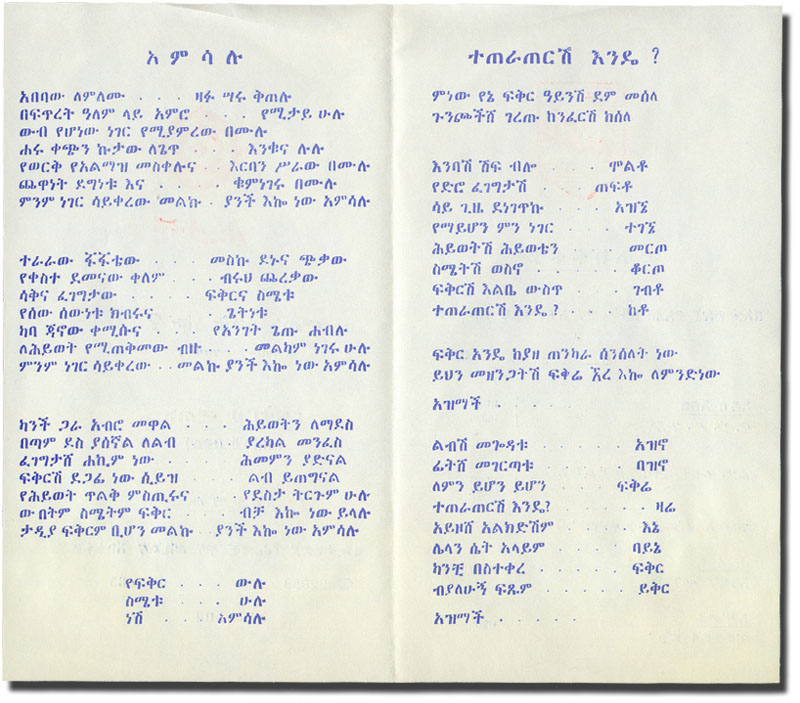 አምሳሉ
አበባው ለምለሙ . . . ዛፉ ሣሩ ቅጠሉ
በፍጥረት ዓለም ላይ አምሮ . . . የሚታይ ሁሉ
ውብ የሆነው ነገር የሚያምረው በሙሉ
ሐሩ ቀጭን ኩታው ለጌጥ . . . እንቁና ሉሉ
የወርቅ የአልማዝ መስቀሉና . . እርባን ሥራው በሙሉ
ጨዋነት ደግነቱ እና . . . . ቁምነገሩ በሙሉ
ምንም ነገር ሳይቀረው መልኩ . ያንች እኰ ነው አምሳሉ
ተራራው ሿሿቴው . . . . መስኩ ደኑና ጭቃው
የቀስተ ደመናው ቀለም . . . ብሩህ ጨረቃው
ሳቅና ፈገግታው . . . . ፍቅርና ስሜቱ
የሰው ሰውነቱ ክብሩና . . . ጌትነቱ
ካባ ጃኖው ቀሚሱና . . . የአንገት ጌጡ ሐብሉ
ለሕይወት የሚጠቅመው ብዙ . . . መልካም ነገሩ ሁሉ
ምንም ነገር ሳይቀረው . . መልኩ ያንች እኰ ነው አምሳሉ
ካንች ጋራ አብሮ መዋል . . . ሕይወትን ለማደስ
በጣም ደስ ያሰኛል ለልብ . . . ያረካል መንፈስ
ፈገግታሽ ሐኪም ነው . . . . ሕመምን ያድናል
ፍቅርሽ ደጋፊ ነው ሲይዝ . . . ልብ ይጠግናል
የሕይወት ጥልቅ ምስጢሩና . . . የደስታ ትርጉም ሁሉ
ውበትም ስሜትም ፍቅር . . . ብቻ እኰ ነው ይላሉ
ታዲያ ፍቅርም ቢሆን መልኩ . . ያንች እኰ ነው አምሳሉ
የፍቅር . . . ውሉ
ስሜቱ . . . ሁሉ
ነሽ . . . አምሳሉ
ተጠራጠርሽ እንዴ ?
ምነው የኔ ፍቅር ዓይንሽ ደም መሰለ
ጉንጮችሽ ገረጡ ከንፈርሽ ከሰለ
እንባሽ ሽፍ ብሎ . . . ሞልቶ
የድሮ ፈገግታሽ . . . . ጠፍቶ
ሳይ ጊዜ ደነገጥኩ . . . . አዝኜ
የማይሆን ምን ነገር . . . . ተገኜ
ሕይወትሽ ሕይወቴን . . . . መርጦ
ስሜትሽ ወስኖ . . . . . ቆርጦ
ፍቅርሽ እልቤ ውስጥ . . . ገብቶ
ተጠራጠርሽ እንዴ ? . . . ከቶ
ፍቅር አንዴ ከያዘ ጠንካራ ሰንሰለት ነው
ይህን መዘንጋትሽ ፍቅሬ ኧረ እኰ ለምንድነው
አዝማች . . . . .
ልብሽ መጐዳቱ . . . . . አዝኖ
ፊትሽ መገርጣቱ . . . . . ባዝኖ
ለምን ይሆን ይሆን . . . . ፍቅሬ
ተጠራጠርሽ እንዴ? . . . . ዛሬ
አይዞሽ አልክድሽም . . . . . እኔ
ሌላን ሴት አላይም . . . . . ባይኔ
ካንቺ በስተቀረ . . . . . ፍቅር
ብያለሁኝ ፍጹም . . . . . ይቅር
አዝማች . . . . .